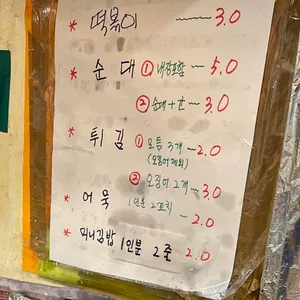 * 떡볶이 ~ 3.0
* 순대 ① 내장포함 ~ 5.0
② 순대 + 간 ~ 3.0
* 튀김 ① 모듬 3개 ~ 2.0
(오징어 제외)
② 오징어 2개 ~ 3.0
* 어묵 1인분 2꼬치 ~ 2.0
* 미니김밥 1인분 2줄 2.0